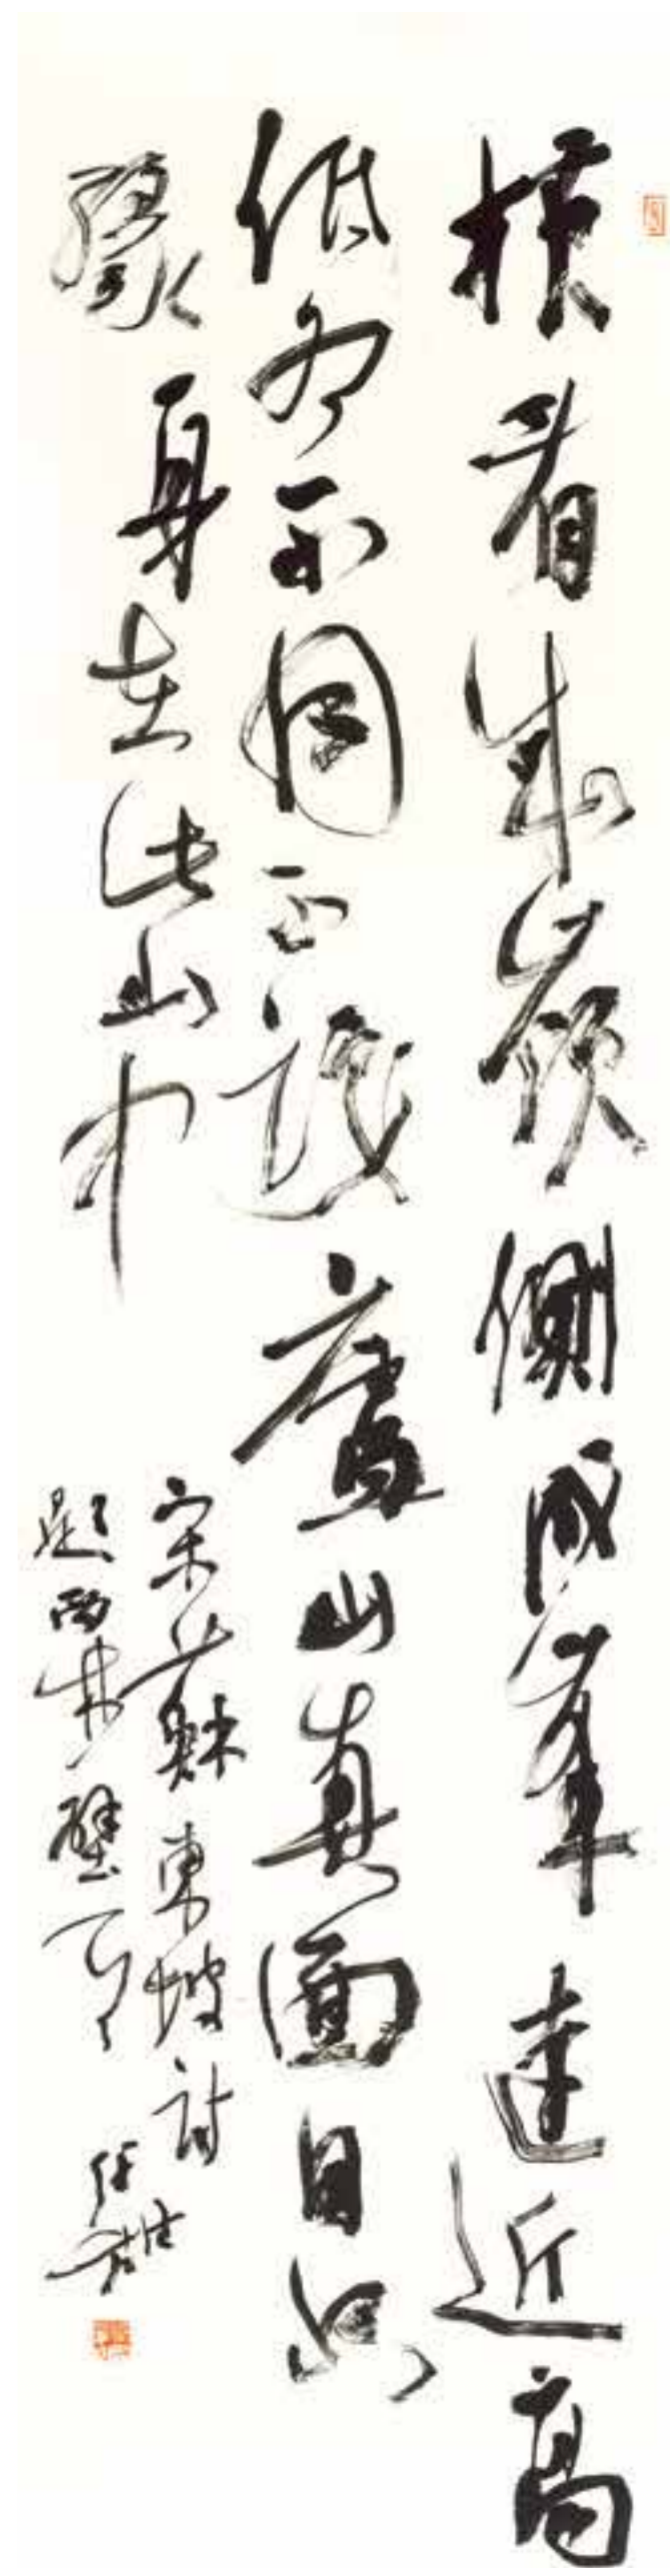 橫看成嶺側成峯遠近高
低各不同不識廬山真面目只
緣身在此山中
宋蘇東坡詩
題西林壁